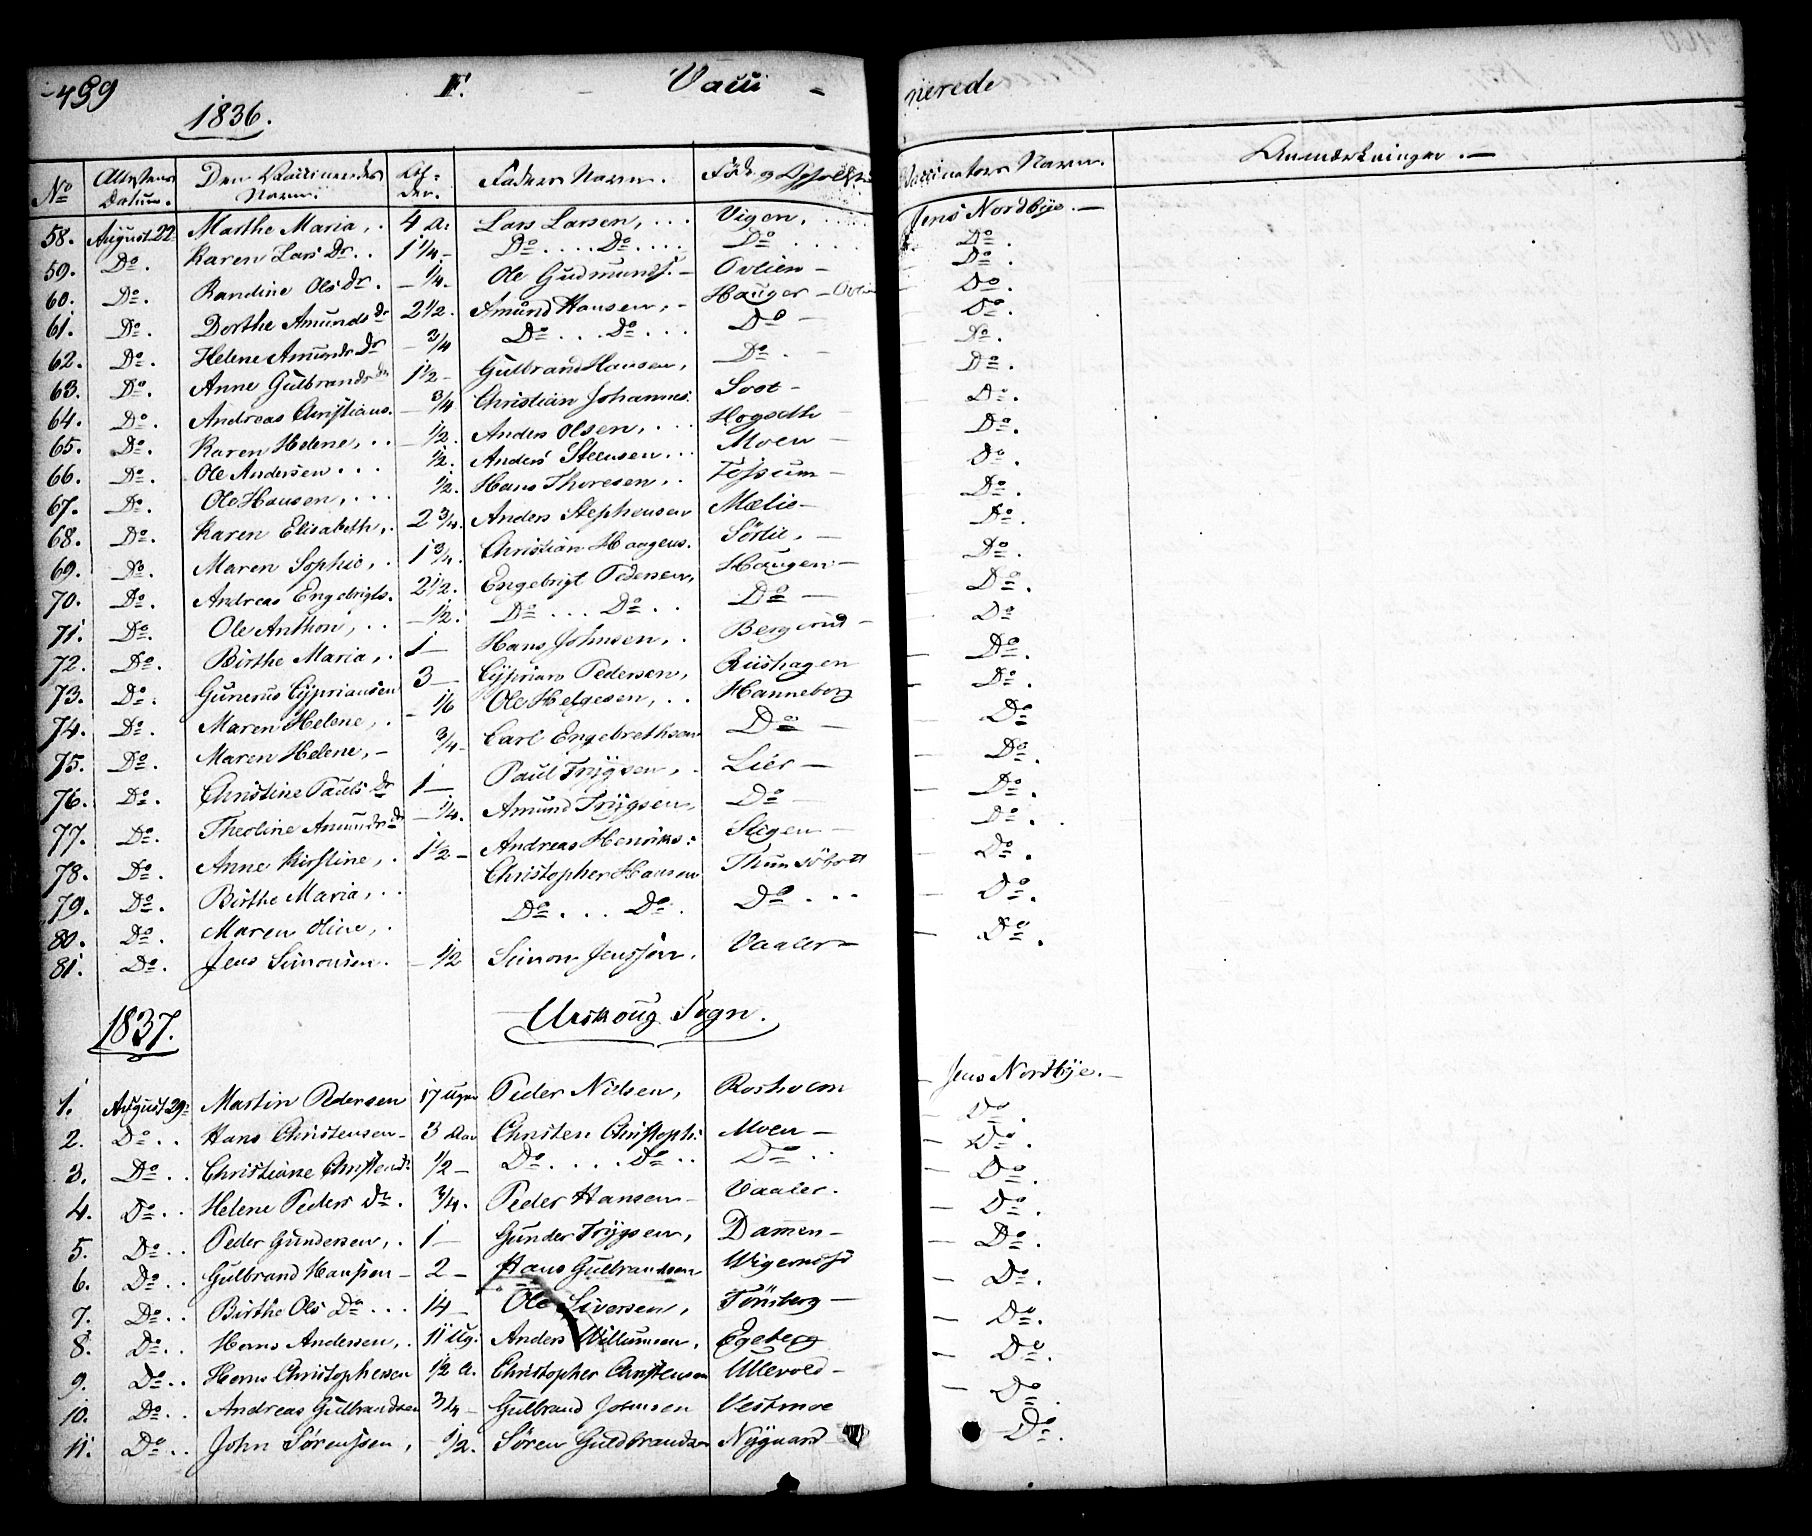 499 F. Vacci - nerede
1836.
No Attestens Datum. Den Vaccineredes Navn. Al-der. Faders Navn. Føde og Opholds Vaccinators Navn. Anmærkninger. —
58. August 22 Marthe Maria, . 4 A: Lars Larsen, . . . Vigen, . . . Jens Nordbÿe. —
59. Do. Karen Lars Dr. . 1 1/4 - Do . . . . Do . . . . Do . . . . Do.
60. Do. Randine Ols dr. - 1/4 - Ole Gudmunds. - Ovlien - — Do.
61. Do. Dorthe Amunds dr 2 1/2. Amund Hansen, - Hauger - — Do.
62. Do. Helene Amunds Dr - 3/4 Do . . . Do . . . Do - Do.
63. Do. Anne Gulbrands dr 1 1/2 - Gulbrand Hansen, Do. - Do.
64. Do. Andreas Christians. - 3/4 Christian Johannes. Soot - — Do.
65. Do. Karen Helene, . . - 1/2. Anders Olsen, . . . Hogseth - — Do.
66. Do. Ole Andersen . . . 1/2. Anders Steensen . . . Moen - — Do.
67. Do. Ole Hansen, . . . 1/2. Hans Thoresen . . Fossum - — Do.
68. Do. Karen Elisabeth, . 2 3/4. Anders Stephensen Mælie - — Do.
69. Do. Maren Sophie, . 1 3/4. Christian Haagens. Sörlie, - — Do.
70. Do. Andreas Engebrigts. 2 1/2. Engebrigt Pedersen, Haugen - — Do.
71. Do. Ole Anthon, . . - 1/2. Do . . . Do . . Do — Do.
72. Do. Birthe Maria, . 1 — Hans Johnsen, . Bergerud - Do
73. Do. Gunerus Cÿpriansen 3 — Cÿprian Pedersen, Riishagen — Do.
74. Do. Maren Helene, . - 1/6 Ole Helgesen, . . Hanneborg - Do.
75. Do. Maren Helene, - 3/4 - Carl Engebrethsen Do — — Do
76. Do. Christine Pauls dr 1 — Paul Trÿgsen, . Lier — — Do.
77. Do. Theoline Amunds dr - 1/4. Amund Trÿgsen, Do — — Do.
78. Do. Anne Kirstine, . 1 1/2 - Andreas Henriks: Stegen - — Do.
79. Do. Birthe Maria, . . Christopher Hansen — Do.
80. Do. Maren Oline, . Do . . . Do . Do . . . — Do.
81. Do. Jens Simonsen. - 1/2 Simon Jenssön. Vaaler - — Do.
1837. Urskoug Sogn.
1. August 29: Martin Pedersen 17 Uger Peder Nielsen, Rosholm — Jens Nordbÿe. —
2. Do . . Hans Christensen - 3 Aar Christen Christoph: Moen — — Do.
3. Do . . Christiane Christens dr 1/2 - Do . . . . Do . . Do . . — Do.
4. Do . . Helene Peders dr. 3/4. Peder Hansen - Vaaler. — Do.
5. Do . . Peder Gundersen, . 1 — Gunder Trÿgsen, Damen - — Do.
6. Do . . Gulbrand Hanssen - 2 - Hans Gulbrandsen — Do.
7. Do . . Birthe Ols Do . . . 14 - Ole Siversen, Tönsberg — — Do.
8. Do . . Hans Andersen, . 11 Ug. Anders Willumsen, Egeberg — Do.
9. Do . . Hans Christophersen 1/2 A. Christopher Christensen Ullevold - — Do.
10. Do . . Andreas Gulbrandsen 3/4 - Gulbrand Johnsen Vestmoe — Do.
11. Do . . John Sörenssen, - 1/2. Sören Guldbrandsen Nÿgaard Do.